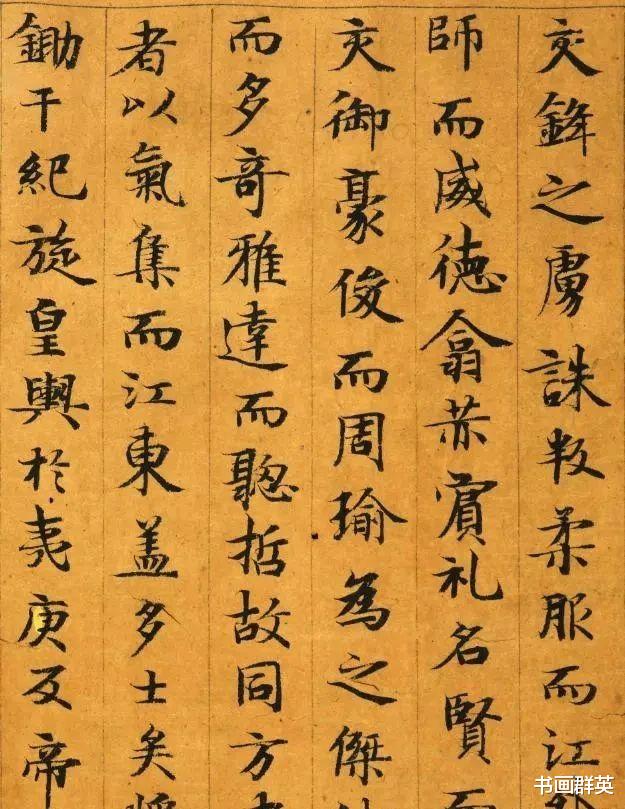 交鋒之虜誅叛柔服而江
師而威德翕赫賓礼名賢而
交御豪俊而周瑜為之傑
而多奇雅達而聰哲故同方
者以氣集而江東盖多士矣將
鋤干紀旋皇輿於夷庚反帝
书画群英